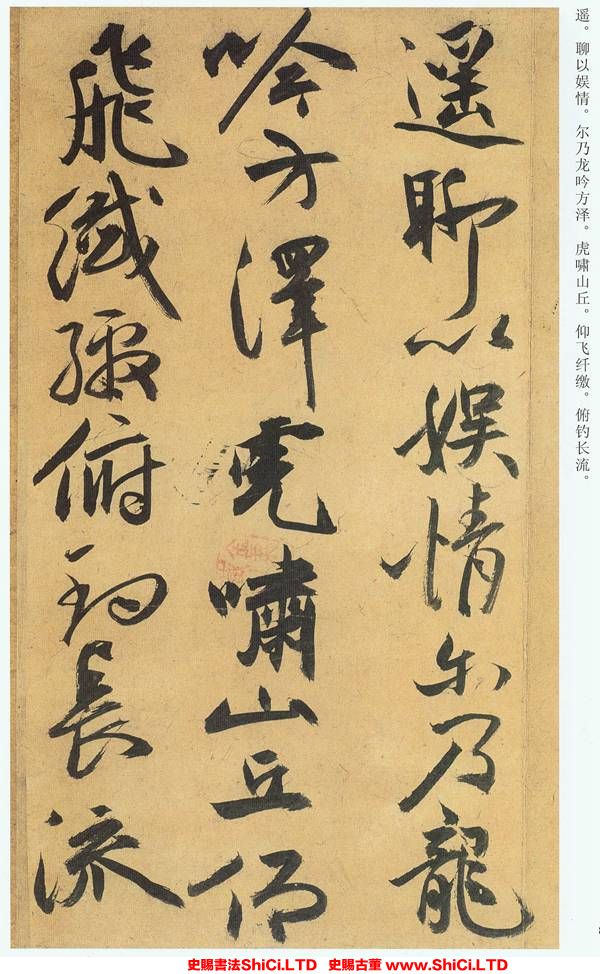 遥。聊以娱情。尔乃龙吟方泽。虎啸山丘。仰飞纤缴。俯钓长流。
遥聊以娱情尔乃龍
吟方澤虎嘯山丘仰
飛纖繳俯釣長流
史賜書法ShiCi.LTD 史賜古董 www.ShiCi.LTD